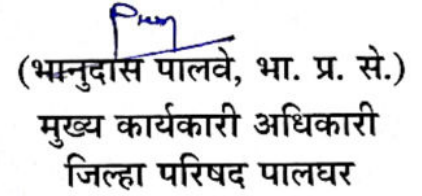 (भानुदास पालवे, भा. प्र. से.)
मुख्य कार्यकारी अधिकारी
जिल्हा परिषद पालघर